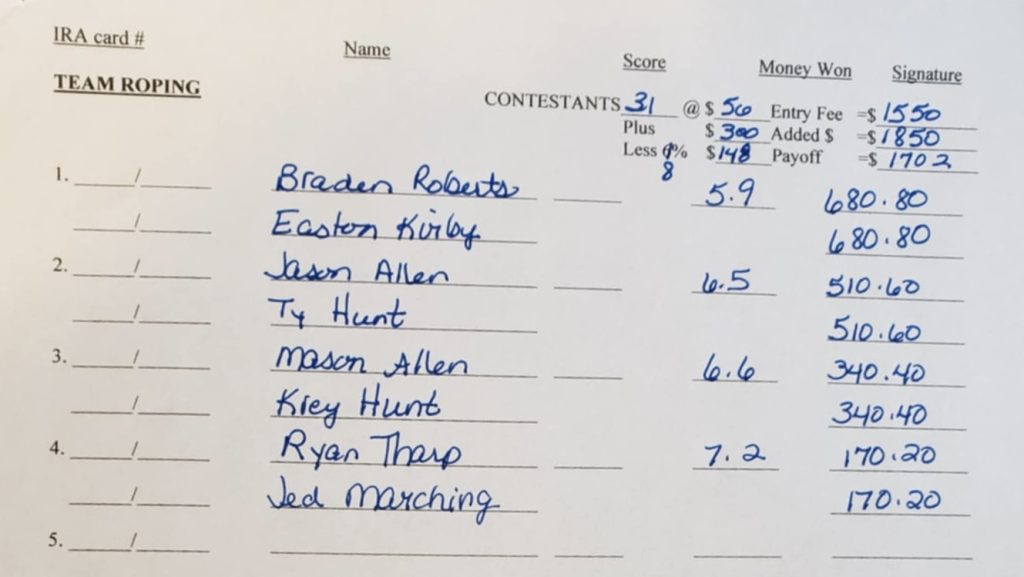 IRA card # Name Score Money Won Signature
TEAM ROPING
CONTESTANTS 31 @ $ 50 Entry Fee =$ 1550
Plus $ 300 Added $ =$ 1850
Less % $148 Payoff =$ 1702
8
1. / Braden Roberts 5.9 680.80
/ Easton Kirby 680.80
2. / Jason Allen 6.5 510.60
/ Ty Hunt 510.60
3. / Mason Allen 6.6 340.40
/ Kiey Hunt 340.40
4. / Ryan Tharp 7.2 170.20
/ Jed Marching 170.20
5. /